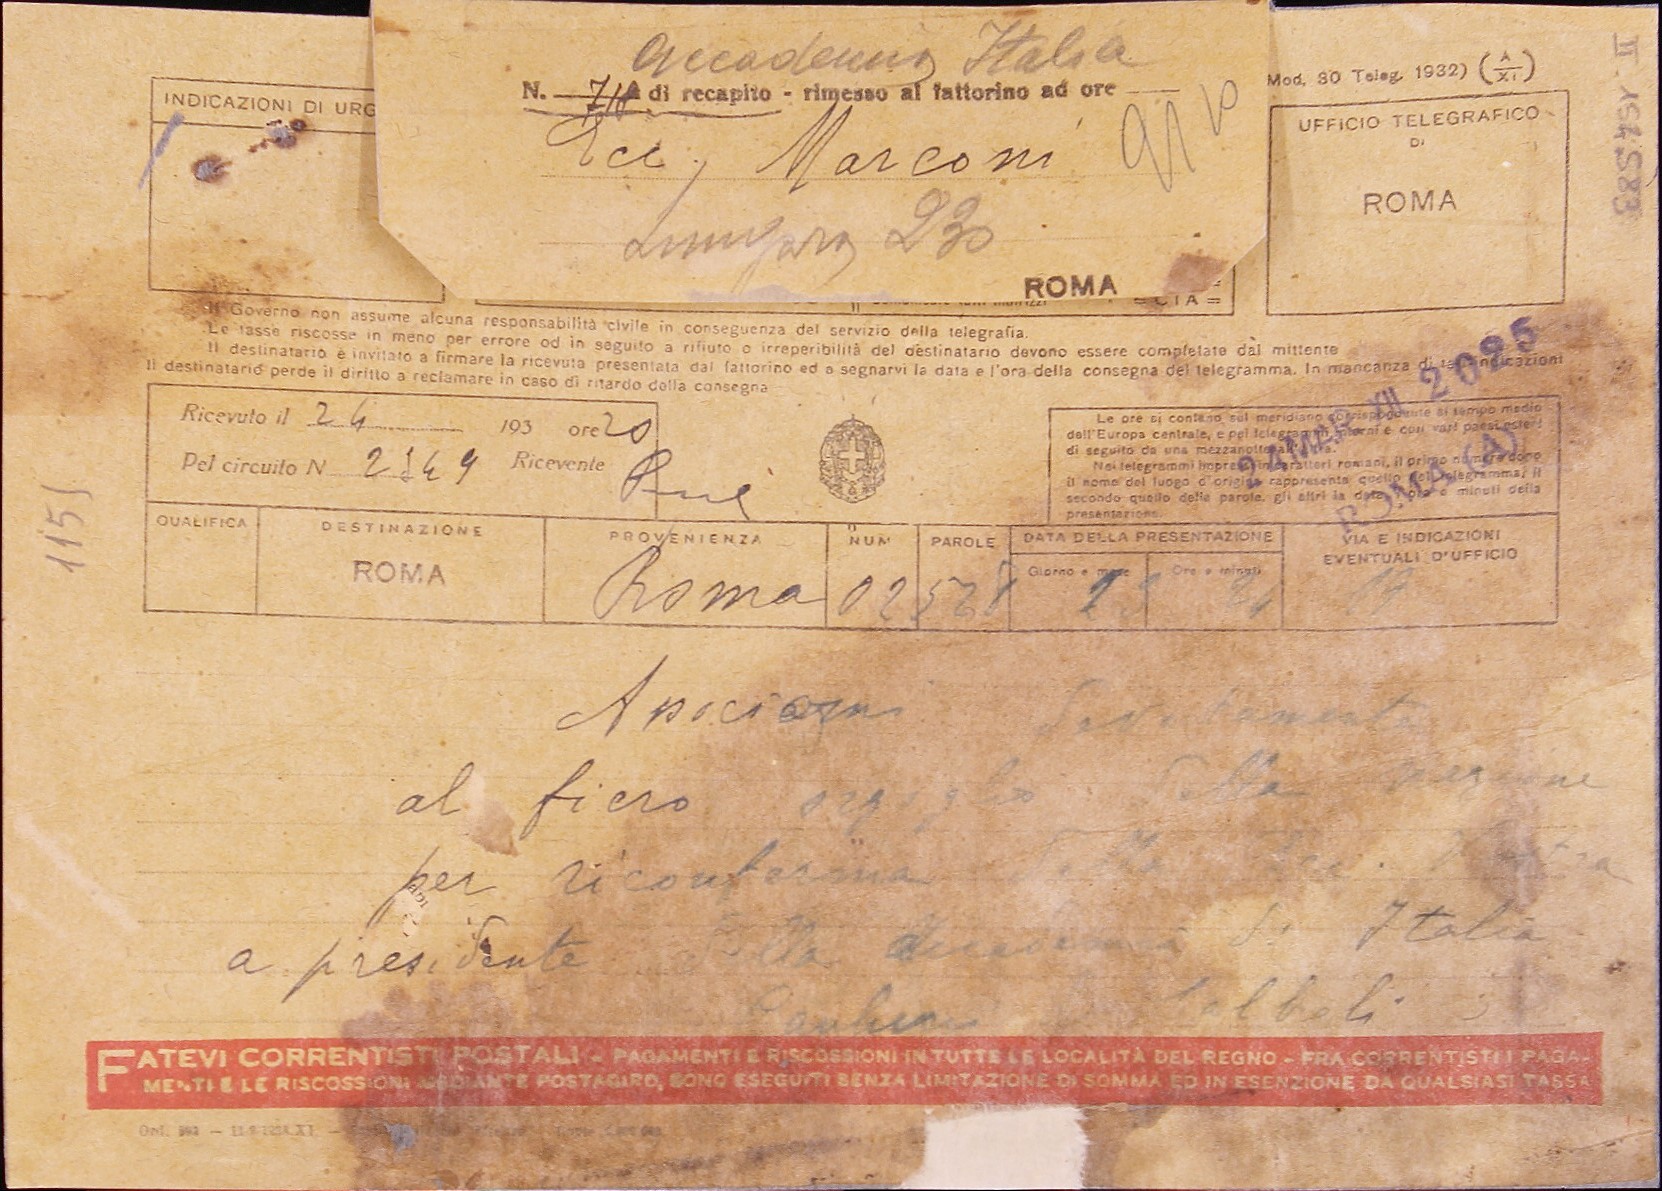 Accademia Italia
N. 718 di recapito - rimesso al fattorino ad ore
Ecc, Marconi
Lungara 230
ROMA
Mod. 30 Teleg. 1932) (A/XI)
INDICAZIONI DI URG
UFFICIO TELEGRAFICO
DI
ROMA
Il Governo non assume alcuna responsabilità civile in conseguenza del servizio della telegrafia.
Le tasse riscosse in meno per errore od in seguito a rifiuto o irreperibilità del destinatario devono essere completate dal mittente
Il destinatario è invitato a firmare la ricevuta presentata dal fattorino ed a segnarvi la data e l'ora della consegna del telegramma. In mancanza di tali indicazioni
Il destinatario perde il diritto a reclamare in caso di ritardo della consegna
Ricevuto il 24 193 ore 20
Pel circuito N 2149 Ricevente
Le ore si contano sul meridiano corrispondente al tempo medio
dell'Europa centrale, e pei telegrammi interni e con vari paesi esteri
di seguito da una mezzanotte all'altra.
Nei telegrammi impressi in caratteri romani, il primo numero dopo
il nome del luogo d'origine rappresenta quello del telegramma, il
secondo quello delle parole, gli altri la data, l'ora e minuti della
presentazione.
24 MAR XII 2025
ROMA (A)
QUALIFICA
DESTINAZIONE
PROVENIENZA
NUM
PAROLE
DATA DELLA PRESENTAZIONE
Giorno e mese
Ore e minuti
VIA E INDICAZIONI
EVENTUALI D'UFFICIO
ROMA
Roma
Associomi devotamente
al fiero orgoglio della Nazione
per riconferma della Ecc. Vostra
a presidente della Accademia di Italia
FATEVI CORRENTISTI POSTALI - PAGAMENTI E RISCOSSIONI IN TUTTE LE LOCALITÀ DEL REGNO - FRA CORRENTISTI I PAGA-
MENTI E LE RISCOSSIONI MEDIANTE POSTAGIRO, SONO ESEGUITI SENZA LIMITAZIONE DI SOMMA ED IN ESENZIONE DA QUALSIASI TASSA
1151